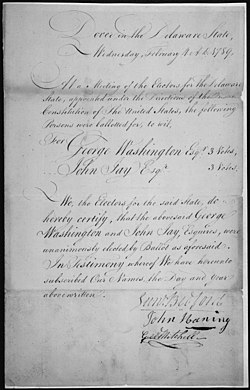 Dover in the Delaware State,
Wednesday, February 4. A.D. 1789.
At a Meeting of the Electors for the Delaware
State, appointed under the Directions of the
Constitution of The United States, the following
Persons were ballotted for to wit,
For
George Washington Esqr. 3 Votes,
John Jay Esqr. 3 Votes.
We, the Electors for the said State, do
hereby certify, that the abovesaid George
Washington and John Jay, Esquires, were
unanimously elected by Ballot as aforesaid.
In Testimony whereof We have hereunto
subscribed Our Names the Day and Year
above written.
Gunn. Bedford
John Baning
Geo Mitchell